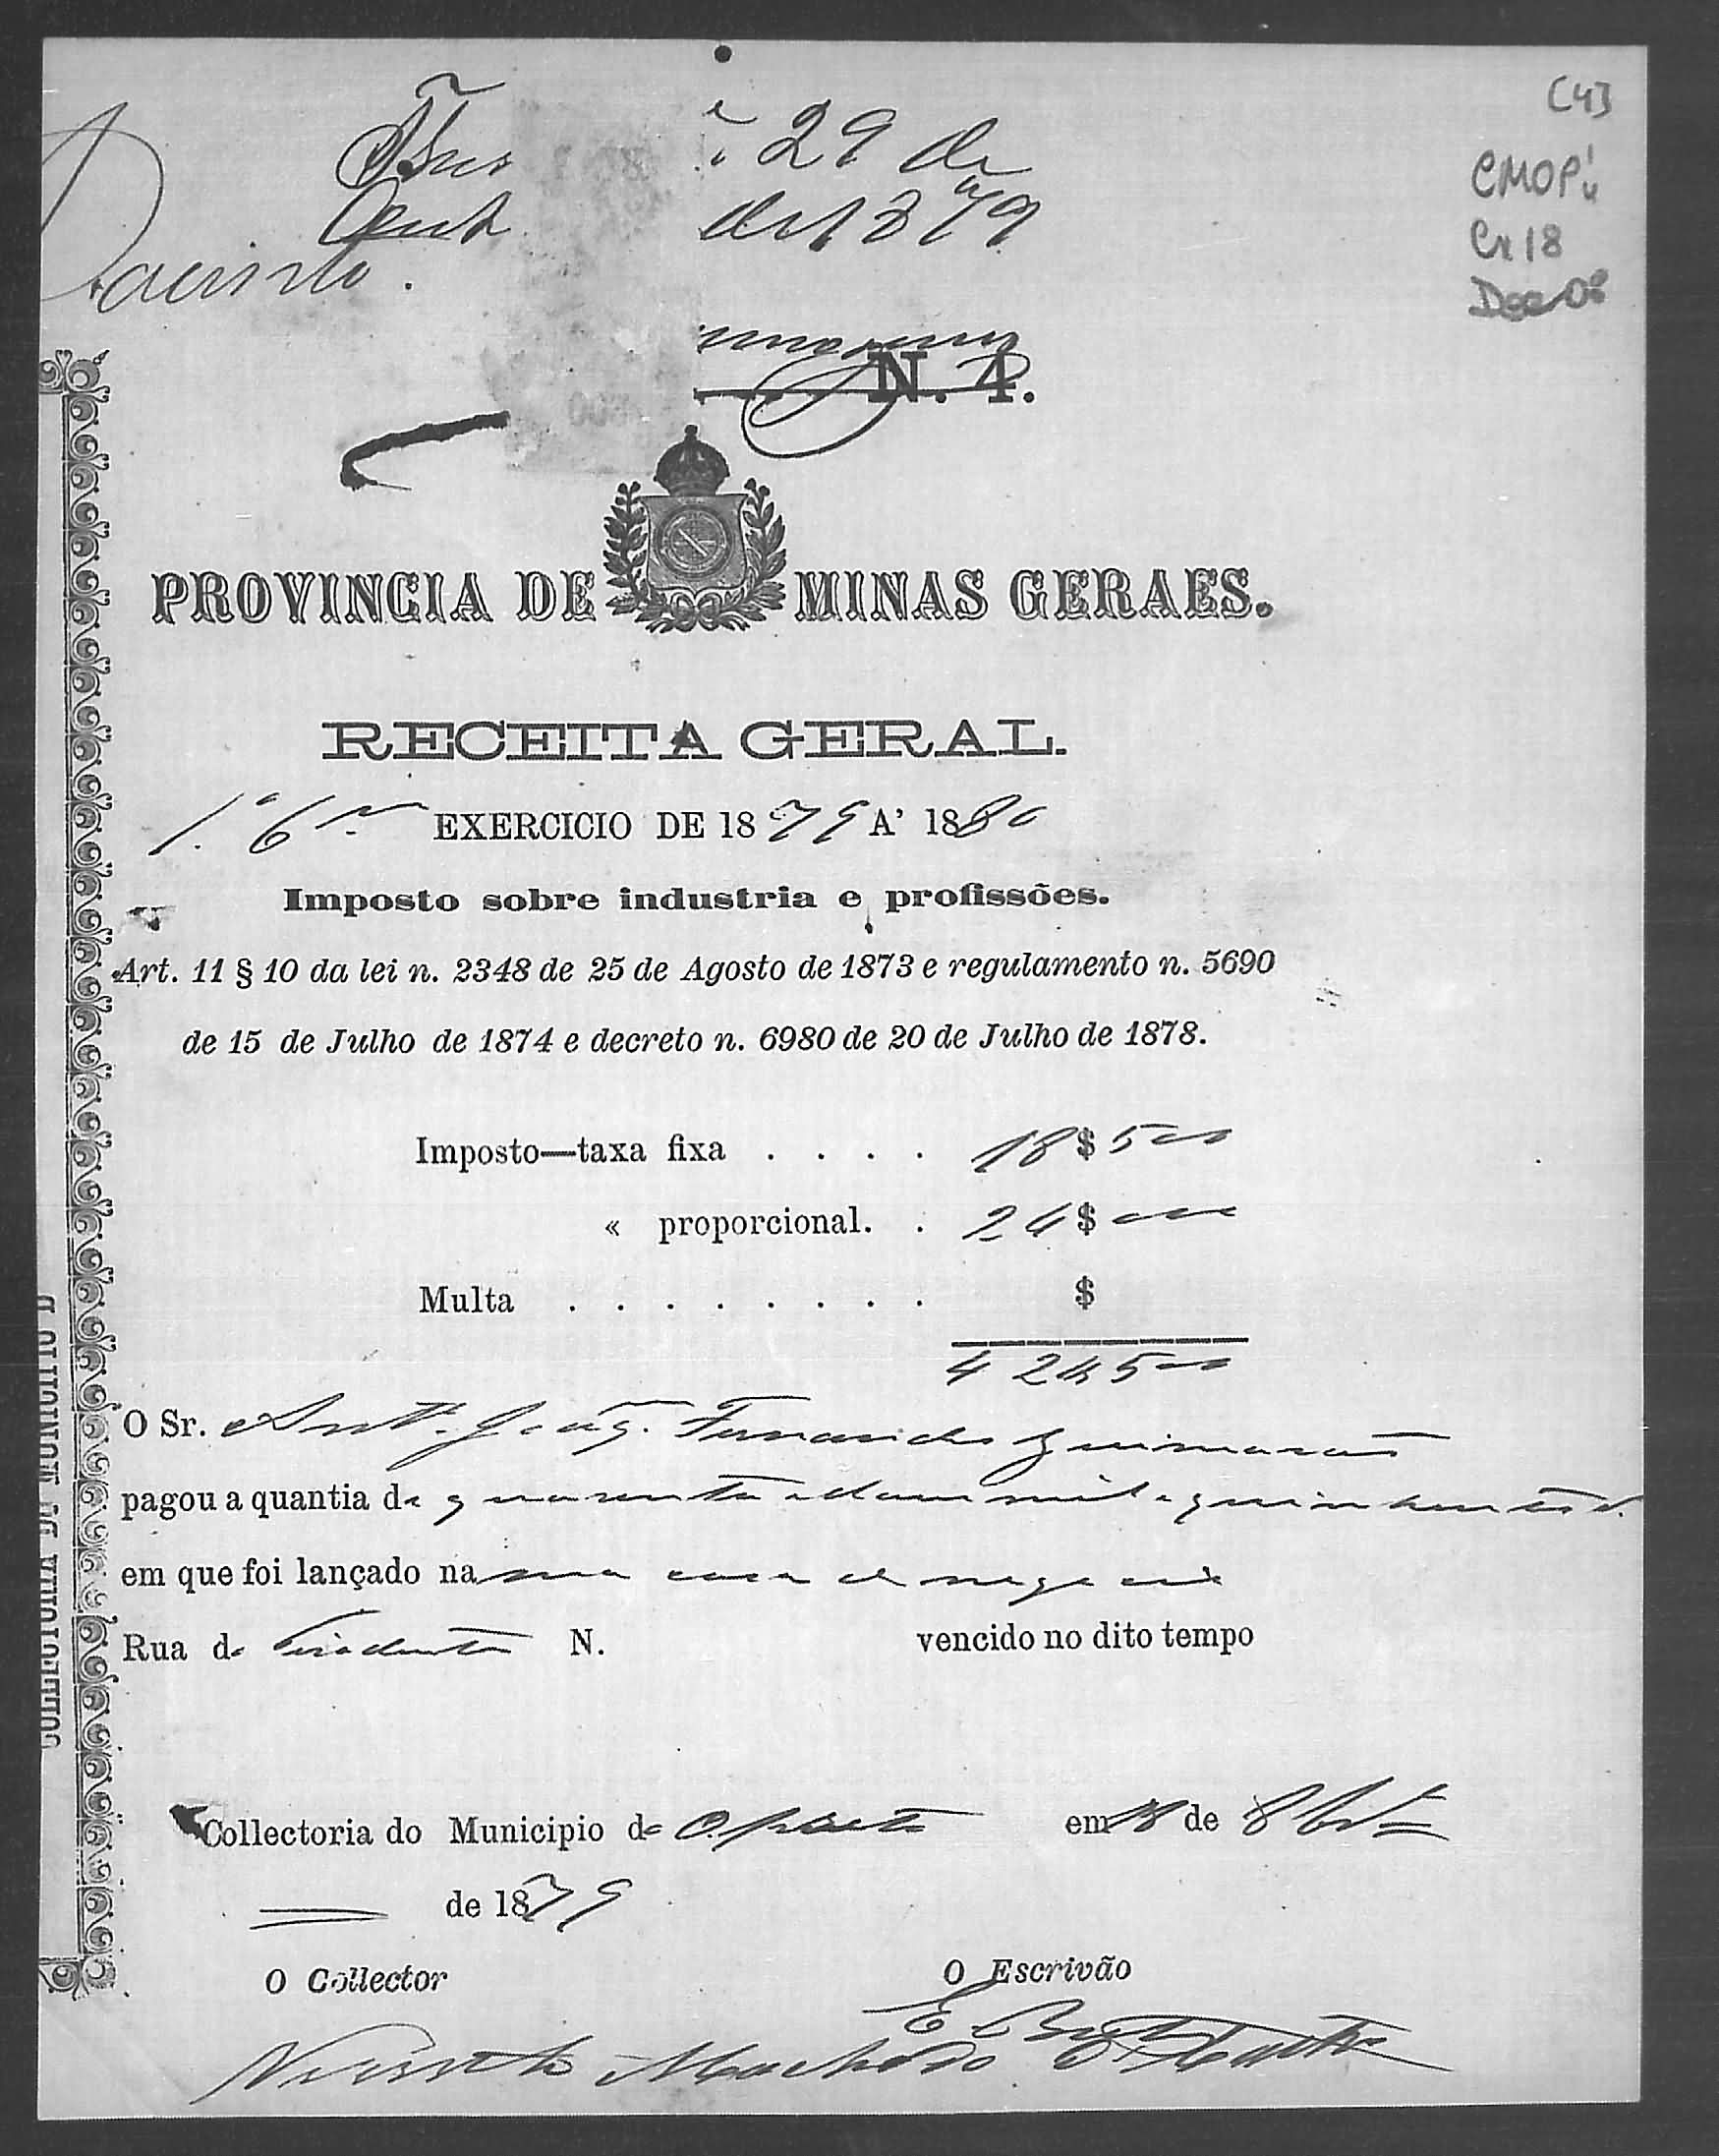 [4]
CMOP
Cx 18
29 de
de 1879
N. 4.
PROVINCIA DE MINAS GERAES.
RECEITA GERAL.
1.º 6 EXERCICIO DE 1879 A' 1880
Imposto sobre industria e profissões.
Art. 11 § 10 da lei n. 2348 de 25 de Agosto de 1873 e regulamento n. 5690
de 15 de Julho de 1874 e decreto n. 6980 de 20 de Julho de 1878.
Imposto—taxa fixa . . . . 18$500
« proporcional. . 24$000
Multa . . . . . . . . $
42$500
O Sr. Antº. Fernandes Guimarães
pagou a quantia de quarenta e dous mil e quinhentos r.
em que foi lançado na sua casa de negocio
Rua de Tiradentes N. vencido no dito tempo
Collectoria do Municipio de O. Preto em 18 de 8brº
de 1879
O Collector O Escrivão
Machado
COLLECTORIA DO MUNICIPIO D